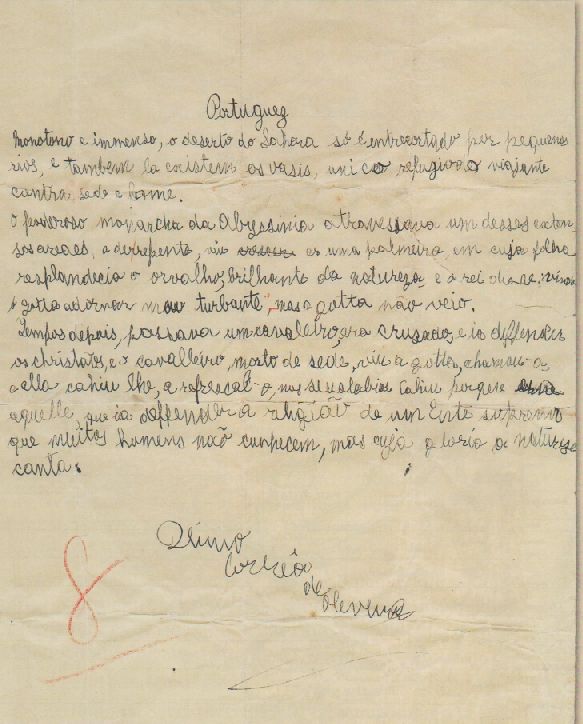 Portuguez
Monotono e immenso, o deserto do Sahara só é entrecortado por pequenos
rios, e tambem la existem os oasis, unico refugio ao viajante
contra sede e fome.
O poderoso monarcha da Abyssinia atravessava um desses exten-
sos areaes, e derrepente, viu em uma palmeira em cuja folha
resplandecia o orvalho, brilhante da natureza, e o rei
gotta adornar meu turbante", mas a gotta não veio.
Tempos depois, passava um cavaleiro, era cruzado, e ia deffender
os christãos, e o cavalleiro, morto de sede, viu a gotta, chamou-a
e ella cahiu lhe, a refrescal-o, nos seus labios. Cahiu porque
aquelle, que ia deffender a religião de um Ente supremo
que muitos homens não conhecem, mas cuja gloria a natureza
canta.
Plinio
Corrêa
de
Oliveira
8